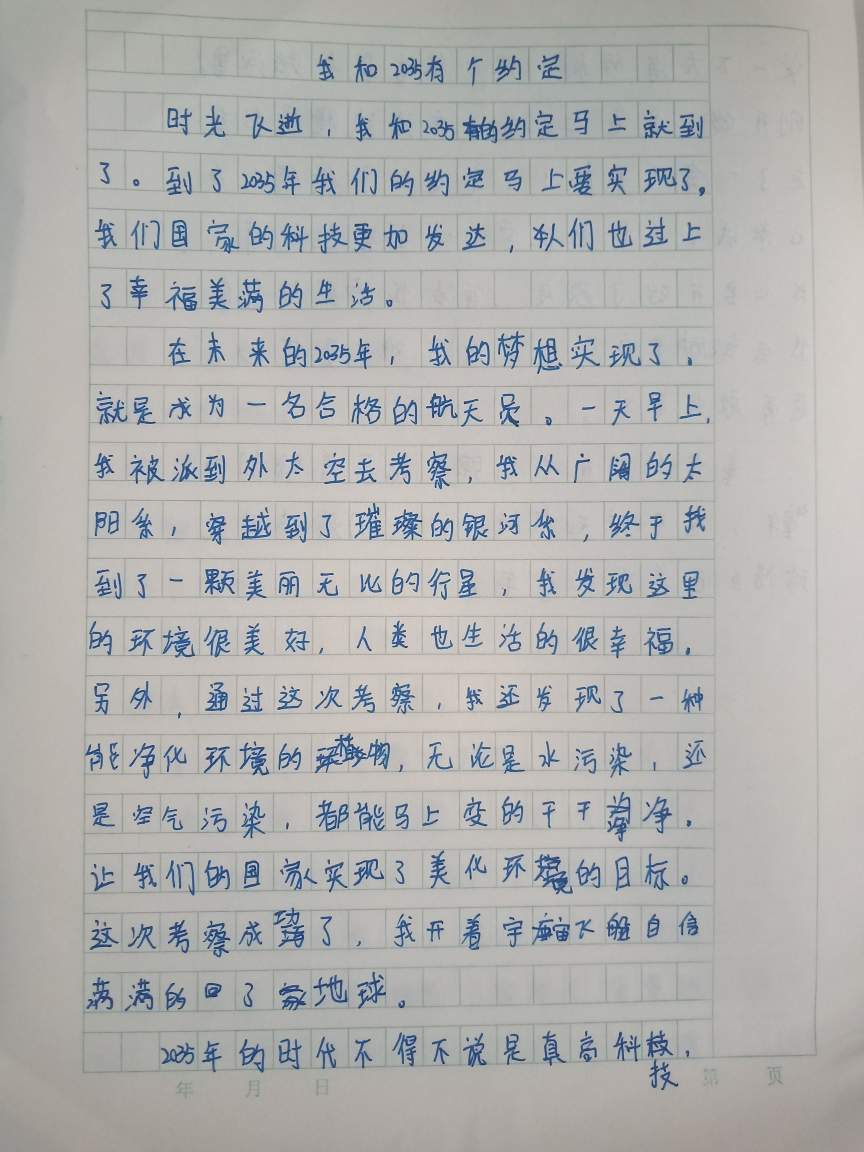 我和2035有个约定
时光飞逝，我和2035的约定马上就到
了。到了2035年我们的约定马上要实现了，
我们国家的科技更加发达，人们也过上
了幸福美满的生活。
在未来的2035年，我的梦想实现了。
就是成为一名合格的航天员。一天早上，
我被派到外太空去考察，我从广阔的太
阳系，穿越到了璀璨的银河系，终于找
到了一颗美丽无比的行星，我发现这里
的环境很美好，人类也生活的很幸福。
另外，通过这次考察，我还发现了一种
能净化环境的植物，无论是水污染，还
是空气污染，都能马上变的干干净净。
让我们的国家实现了美化环境的目标。
这次考察成功了，我开着宇宙飞船自信
满满的回了地球。
2035年的时代不得不说是真高科技，
年 月 日 第 页